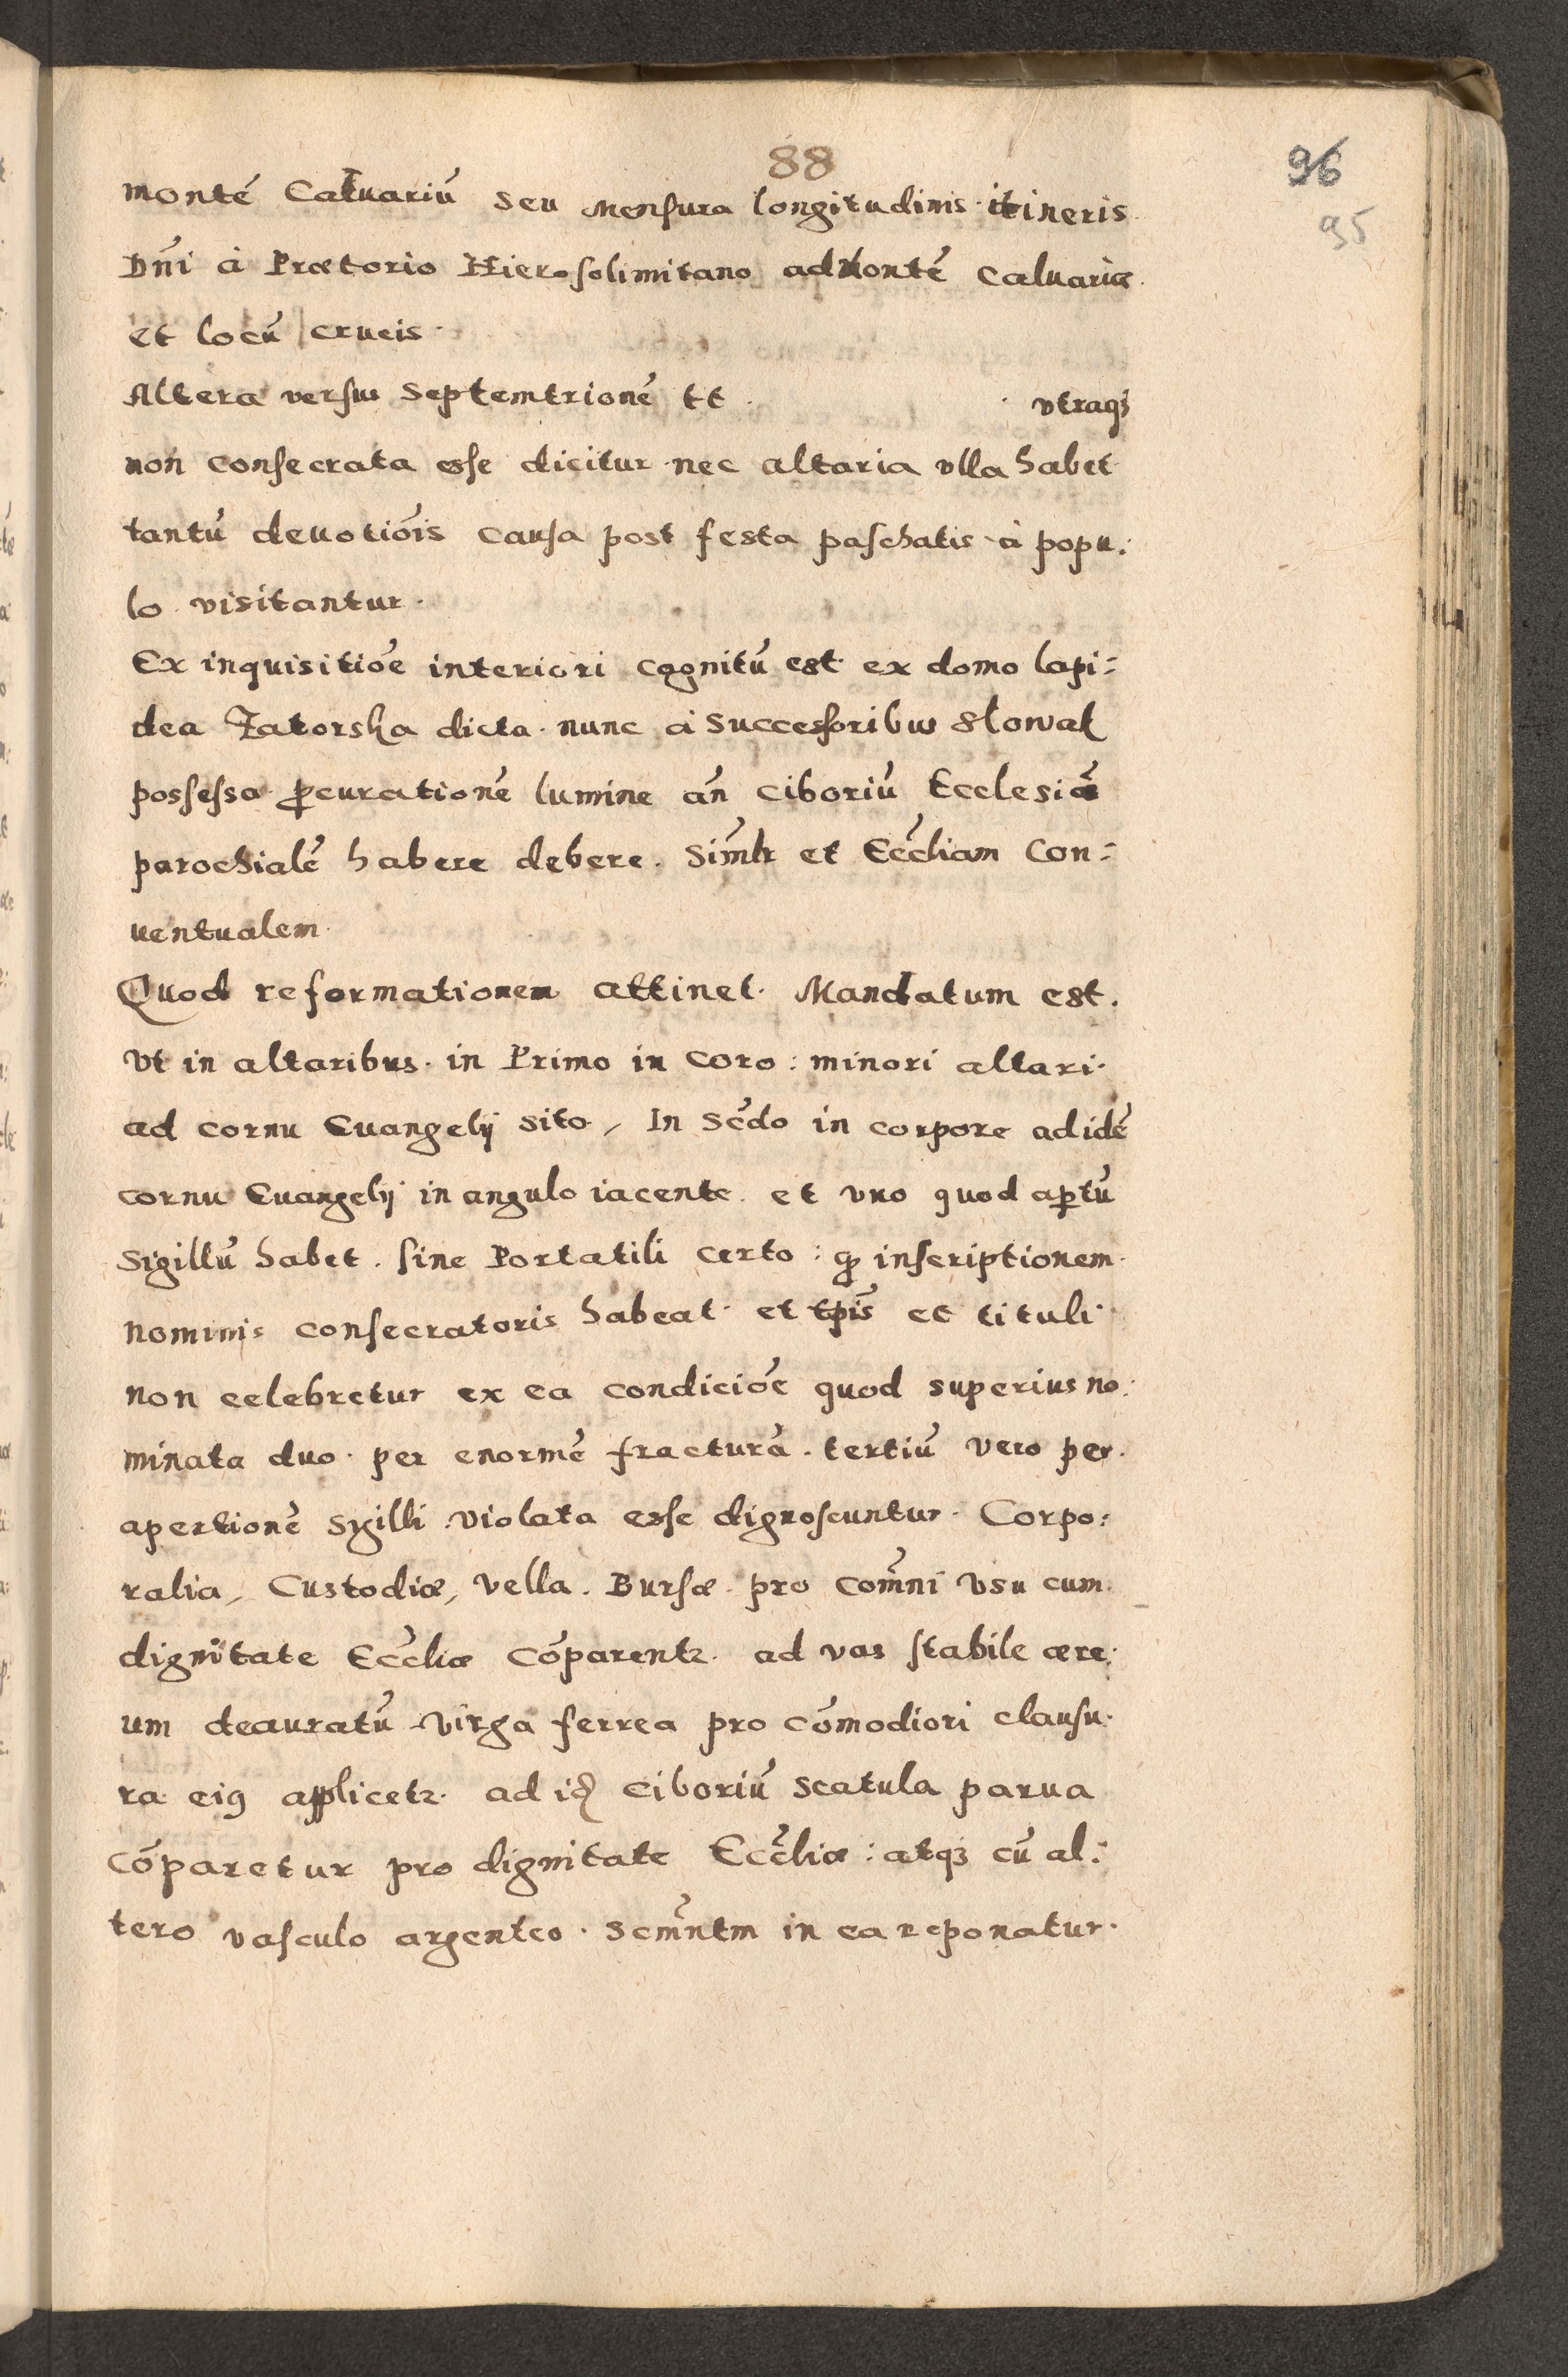 88
96
95
montē Caluariū seu Mensura longitudinis itineris
Dn̄i à Prætorio Hierosolimitano ad Montē Caluariæ
et locū crucis.
Altera versus Septemtrionē tt . . vtraqꝫ
non consecrata esse dicitur nec altaria vlla habet
tantū deuotiōis causa post festa paschatis à popu:
lo visitantur.
Ex inquisitiōe interiori cognitū est ex domo lapi:
dea Zatorska dicta nunc à Successoribus Slowak
possessa ꝓcurationē lumine an̄ ciborium Ecclesiā
parochialē habere debere. Sim̄lr et Ecc̄liam Con:
uentualem.
Quod reformationem attinet. Mandatum est.
Vt in altaribus. in Primo in coro: minori altari.
ad cornu Euangelij sito, In Scd̄o in corpore ad idē
cornu Euangelij in angulo iacente. et vno quod aꝑtū
sigillū habet. sine Portatili certo: qƺ inscriptionem
nominis consecratoris habeat. et tp̄is et tituli.
non celebretur ex ea condiciōe quod superius no:
minata duo. per enormē fracturā. tertiū vero per.
apertionē sigilli violata esse dignoscuntur. Corpo:
ralia, Custodiæ, vella. Bursæ. pro com̄ni vsu cum
dignitate Ecc̄liæ cōparentꝛ. ad vas stabile ære:
um deauratū virga ferrea pro cōmodiori clausu:
ra eiꝰ applicetꝛ. ad iđ ciboriū scatula parua
cōparetur pro dignitate Ecc̄liæ: atqꝫ cū al:
tero vasculo argenteo. Scm̄ntm in ea reponatur.